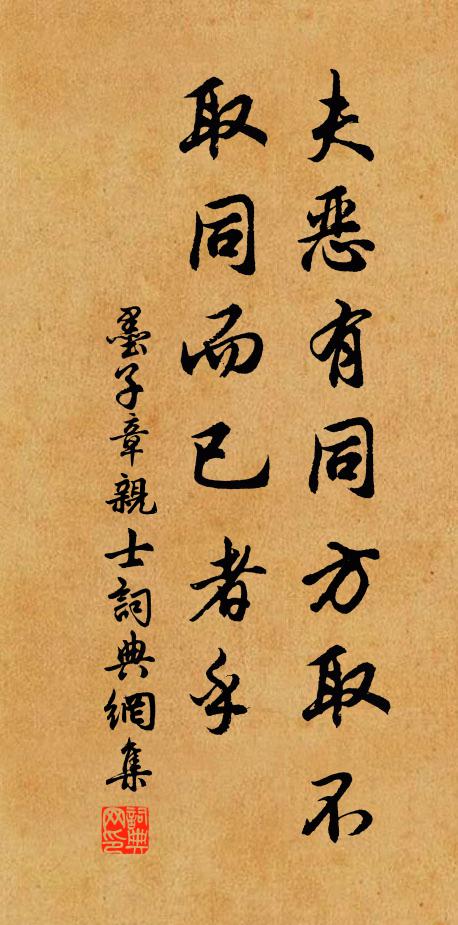 夫恶有同方取不
取同而已者乎
墨子章親士詞典網集
詞典
网印